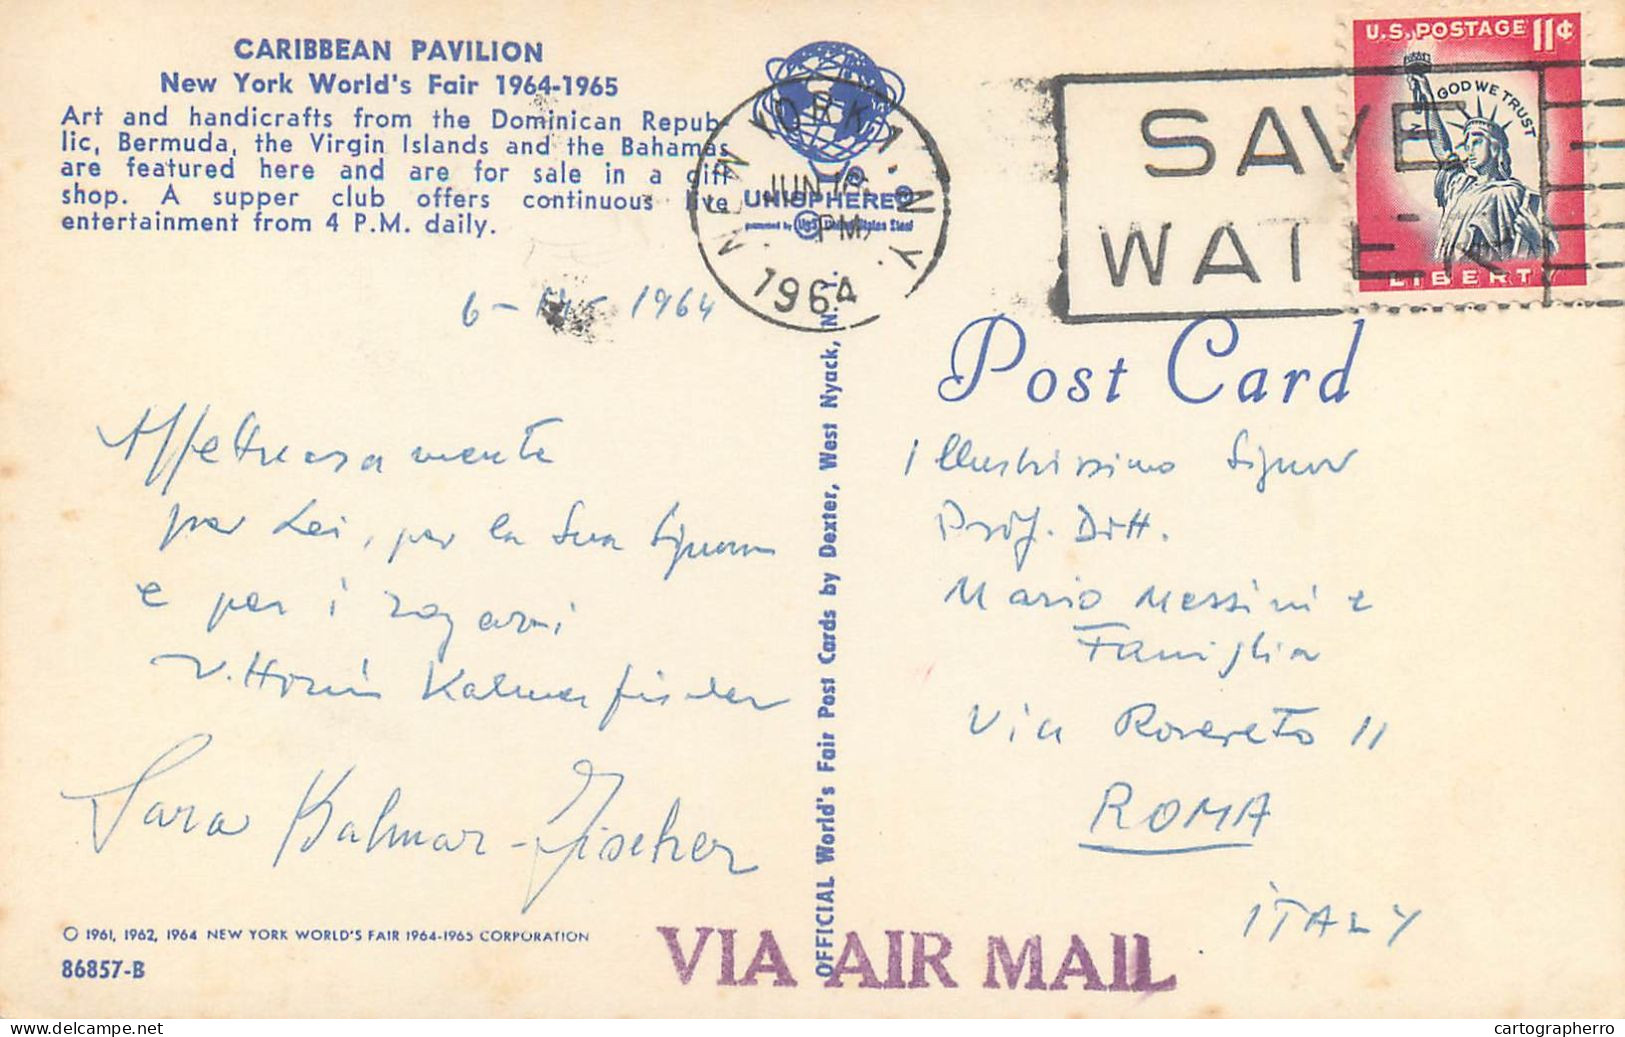 CARIBBEAN PAVILION
New York World's Fair 1964-1965
Art and handicrafts from the Dominican Repub-
lic, Bermuda, the Virgin Islands and the Bahamas
are featured here and are for sale in a gift
shop. A supper club offers continuous live
entertainment from 4 P.M. daily.
UNISPHERE®
presented by USS United States Steel
NEW YORK 1, N.Y.
JUN
PM
1964
SAVE
WATER
U.S. POSTAGE 11¢
IN GOD WE TRUST
LIBERTY
6 - 1964
Post Card
Affettuosamente
per Lei, per la Sua Signora
e per i ragazzi
Vittorio Kalmar fischer
Sara Kalmar-Fischer
Illustrissimo Signor
Prof. Dott.
Mario Messini e
Famiglia
Via Rovereto 11
ROMA
ITALY
OFFICIAL World's Fair Post Cards by Dexter, West Nyack, N. Y.
© 1961, 1962, 1964 NEW YORK WORLD'S FAIR 1964-1965 CORPORATION
86857-B
VIA AIR MAIL
delcampe.net
cartographerro